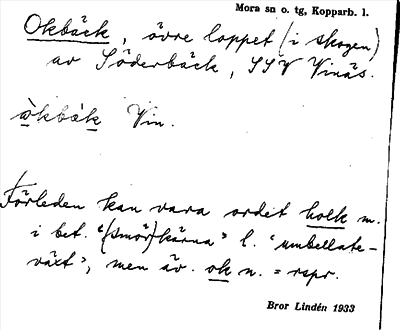 Mora sn o. tg, Kopparb. l.
Okbäck, övre loppet (i skogen)
av Söderbäck, SSV Vinäs.
òkbàk Vin.
Förleden kan vara ordet holk m.
i bet. "(smör)kärna" l. "umbellate-
växt", men äv. ok n. = rspr.
Bror Lindén 1933